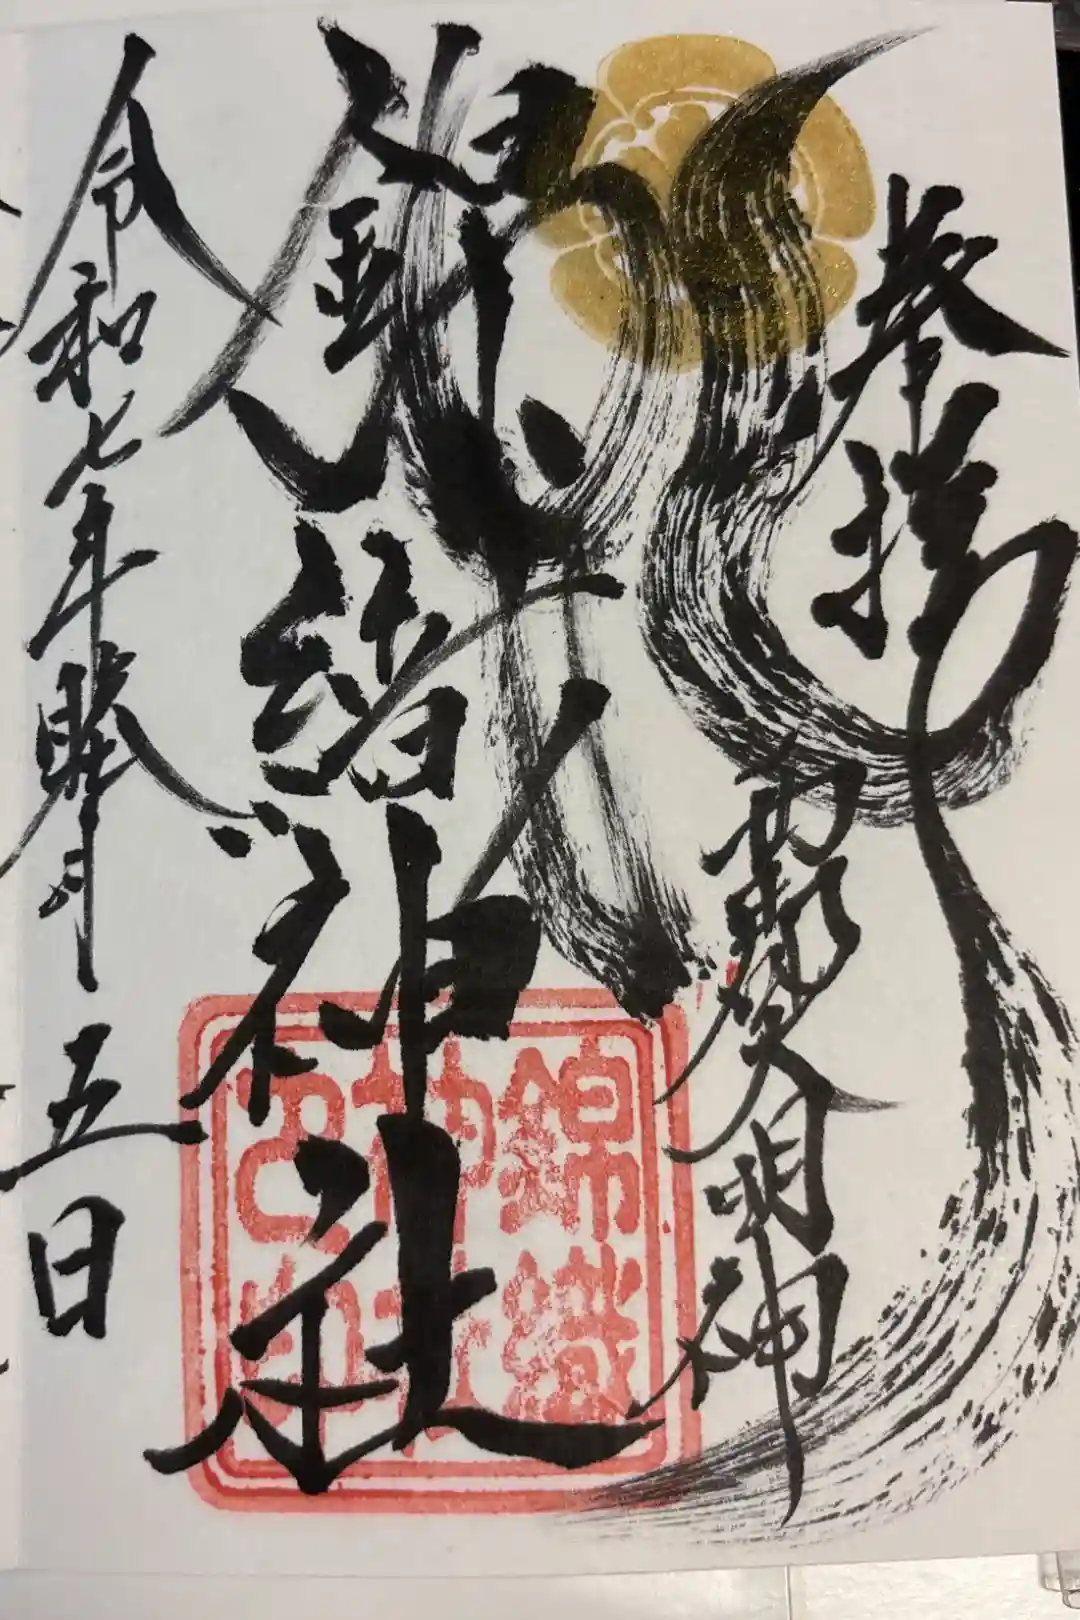 奉拝
明神
錦織神社
錦織
神社
之印
令和七年睦月五日